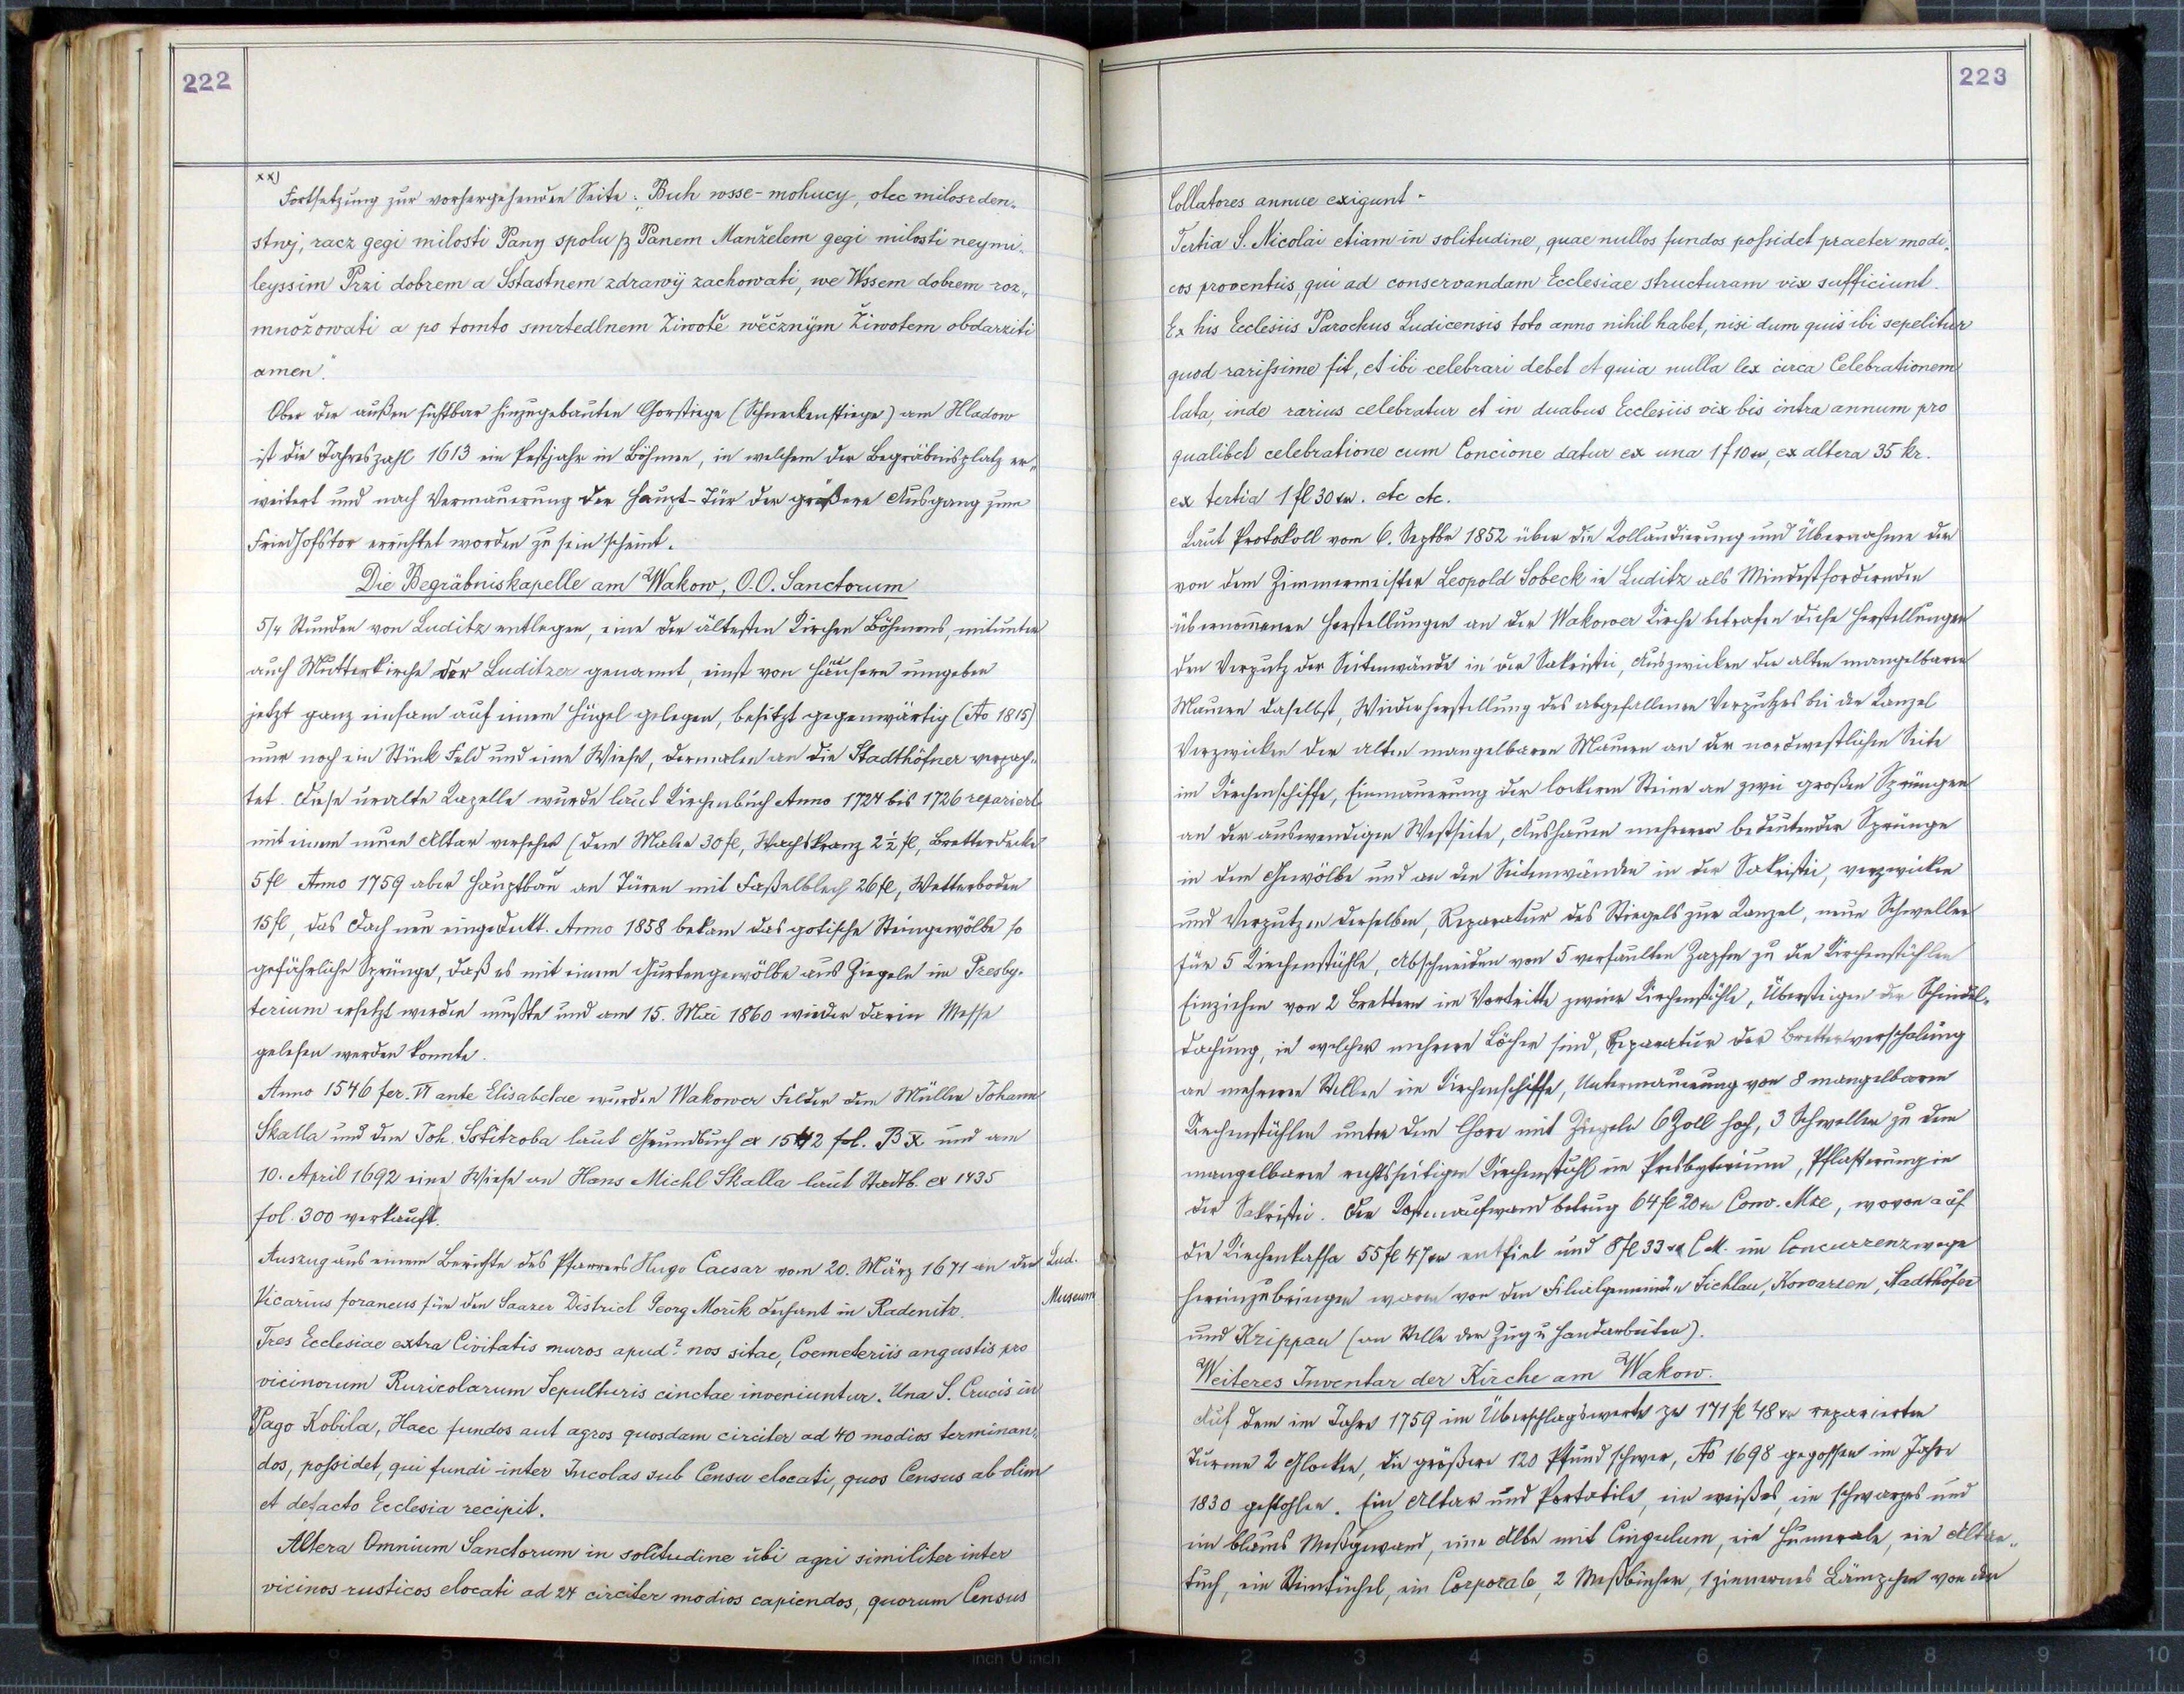 222
xx)
Fortsetzung zur vorhergehenden Seite: „Buh wsse-mohucy, otec milosrden-
stny, racz gegi milosti Pany spolu sz Panem Manželem gegi milosti neymi-
leyssim Przi dobrem a Sstastnem zdrawÿ zachowati, we Wssem dobrem roz-
množowati a po tomto smrtedlnem Ziwotě wěčznÿm Žiwotem obdarziti
amen."
Ober der außen sichtbar hinzugebauten Chorstiege (Schneckenstiege) am Hladow
ist die Jahreszahl 1613 ein Pestjahr in Böhmen, in welchem der Begräbnisplatz er-
weitert und nach Vermauerung der Haupt-Tür der größere Ausgang zum
Friedhofstor errichtet worden zu sein scheint.
Die Begräbniskapelle am Wakow, O.O. Sanctorum
5/4 Stunden von Luditz entlegen, eine der ältesten Kirchen Böhmens, mitunter
auch Mutterkirche der Luditzer genannt, einst von Häusern umgeben
jetzt ganz einsam auf einem Hügel gelegen, besitzt gegenwärtig (Ao 1815)
nur noch ein Stück Feld und eine Wiese, dermalen an die Stadthöfner verpach-
tet. Diese uralte Kapelle wurde laut Kirchenbuch Anno 1724 bis 1726 repariert
mit einem neuen Altar versehen (dem Maler 30 fl, Wachskranz 2½ fl, Bretterdecke
5 fl Anno 1759 aber Hauptbau an Türen mit Faßelblech 26 fl, Wetterboden
15 fl, das Dach neu eingedeckt. Anno 1858 bekam das gotische Steingewölbe so
gefährliche Sprünge, daß es mit einem Gurtengewölbe aus Ziegeln im Presby-
terium ersetzt werden mußte und am 15. Mai 1860 wieder darin Messe
gelesen werden konnte.
Anno 1546 fer. VI ante Elisabetae wurden Wakower Felder dem Müller Johann
Skalla und dem Joh. Sstitroba laut Grundbuch ex 1542 fol. B X. und am
10. April 1692 eine Wiese an Hans Michl Skalla laut Stadtb. ex 1435
fol. 300 verkauft.
Auszug aus einem Berichte des Pfarrers Hugo Caesar vom 20. März 1671 an den
Lud.
Museum
Vicarius foraneus für den Saazer District Georg Morik Dechant in Radenitz.
Tres Ecclesiae extra Civitatis muros apud? nos sitae, Coemeteriis angustis pro
vicinorum Ruricolarum Sepulturis cinctae inveniuntur. Una S. Crucis in
Pago Kobila, Haec fundos aut agros quosdam circiter ad 40 modios terminan-
dos, possidet, qui fundi inter Incolas sub Censu elocati, quos Census ab olim
et defacto Ecclesia recipit.
Altera Omnium Sanctorum in solitudine ubi agri similiter inter
vicinos rusticos elocati ad 24 circiter modios capiendos, quorum Census
223
Collatores annue exigunt -
Tertia S. Nicolai etiam in solitudine, quae nullos fundos possidet praeter modi-
cos proventus, qui ad conservandam Ecclesiae structuram vix sufficiunt.
Ex his Ecclesiis Parochus Ludicensis toto anno nihil habet, nisi dum quis ibi sepelitur
quod rarissime fit, et ibi celebrari debet et quia nulla lex circa Celebrationem
lata, inde rarius celebratur et in duabus Ecclesiis vix bis intra annum pro
qualibet celebratione cum Concione datur ex una 1 f 10 xr, ex altera 35 kr.
ex tertia 1 fl 30 xr. etc etc.
Laut Protokoll vom 6. Septbr 1852 über die Kollaudierung und Übernahme der
von dem Zimmermeister Leopold Sobeck in Luditz als Mindestfordernden
übernommenen Herstellungen an der Wakower Kirche betrafen diese Herstellungen
den Verputz der Seitenwände in der Sakristei, Auszwicken der alten mangelbaren
Mauern daselbst, Wiederherstellung des abgefallenen Verputzes bei der Kanzel
Verzwicken der alten mangelbaren Mauern an der nordwestlichen Seite
im Kirchenschiffe, Einmauerung der lockeren Steine an zwei großen Sprüngen
an der auswendigen Westseite, Aushauen mehrerer bedeutender Sprünge
in dem Gewölbe und an den Seitenwänden in der Sakristei, verzwicken
und Verputzen derselben, Reparatur des Stiegels zur Kanzel, neue Schweller
für 5 Kirchenstühle, Abschneiden von 5 verfaulten Zapfen zu den Kirchenstühlen
Einziehen von 2 Brettern im Vortritte zweier Kirchenstühle, Übersteigen der Schindel-
dachung, in welcher mehrere Löcher sind, Reparatur der Bretterverschalung
an mehreren Stellen im Kirchenschiffe, Untermauerung von 8 mangelbaren
Kirchenstühlen unter dem Chore mit Ziegeln 6 Zoll hoch, 3 Schwellen zu dem
mangelbaren rechtsseitigen Kirchenstuhl im Presbyterium, Pflasterung in
der Sakristei. Der Kostenaufwand betrug 64 fl 20 xr Conv. Mze, wovon auf
die Kirchenkassa 55 fl 47 xr entfiel und 8 fl 33 xr C.M. im Concurrenzwege
hereinzubringen waren von den Filialgemeinden Lichlau, Kowarzen, Stadthöfer
und Krippau (an Stelle der Zug u Handarbeiten).
Weiteres Inventar der Kirche am Wakow.
Auf dem im Jahre 1759 im Überschlagswerte zu 171 fl 48 xr reparierten
Turme 2 Glocken, die größere 120 Pfund schwer, Ao 1698 gegossen im Jahre
1830 gestohlen. Ein Altar und Portatile, ein weißes, ein schwarzes und
ein blaues Meßgewand, eine Albe mit Cingulum, ein Humerale, ein Altar-
tuch, ein Kimtüchel, ein Corporale, 2 Meßbücher, 1 zinnernes Lämpchen von der